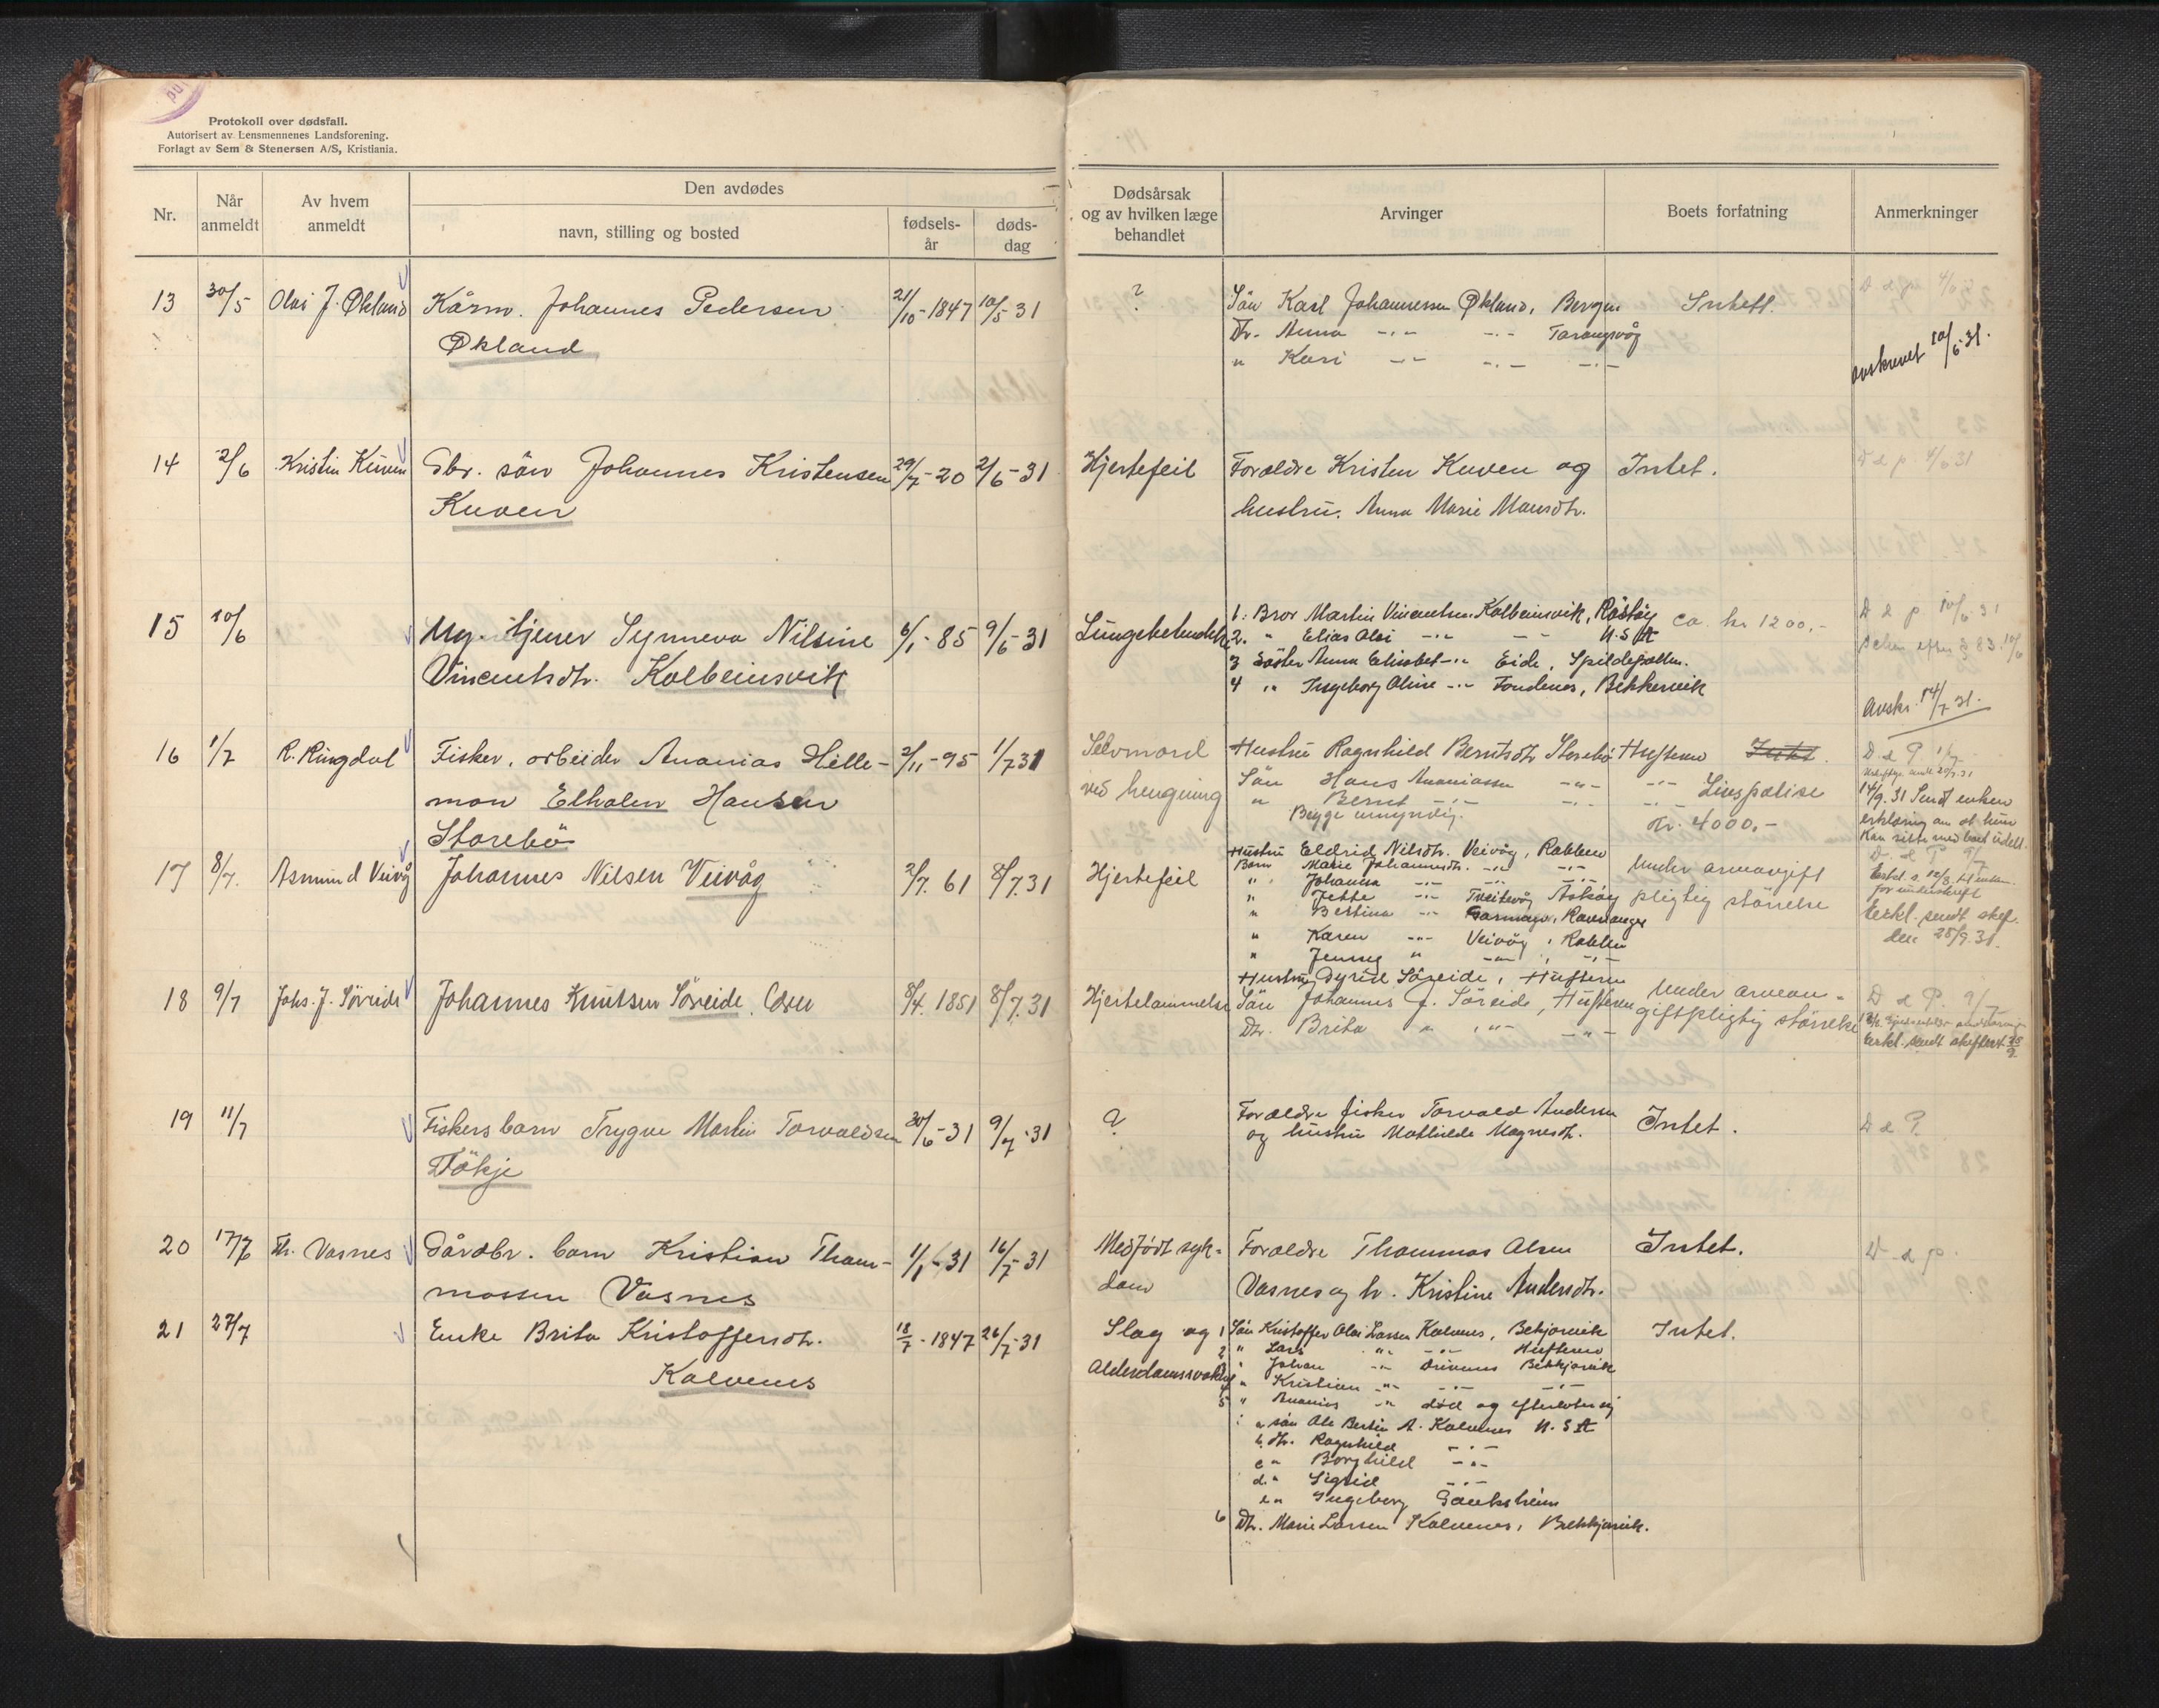 Protokoll over dødsfall.
Autorisert av Lensmennenes Landsforening.
Forlagt av Sem & Stenersen A/S, Kristiania.
Nr. Når anmeldt Av hvem anmeldt Den avdødes navn, stilling og bosted fødselsår dødsdag Dødsårsak og av hvilken læge behandlet Arvinger Boets forfatning Anmerkninger
13 30/5 Olai J. Økland Kårm. Johannes Pedersen 21/10-1847 10/5 31 ? Sön Karl Johannessen Økland, Bergen Intett.
Økland Dtr. Anna -"- -"- Tarangsvåg
" Kari -"- -"- -"- avskrevet 10/6-31.
14 2/6 Kristen Kuven Gbr. sön Johannes Kristensen 29/7-20 2/6-31 Hjertefeil Foreldre Kristen Kuven og Intet. D d p. 4/6 31
Kuven hustru. Anna Marie Monsdtr.
15 10/6 Ug. tjener Synneva Nilsine 6/1-85 9/6-31 1. Bror Martin Vincentsen Kolbeinsvik, ca. kr 1200,- D d p 10/6 31
2. " Elias Olai -"- -"- U.S.A
Vincentsdtr. Kolbeinsvik 3 Søster Anna Elisabet -"- Eide, Spildepollen.
4 " Ingeborg Oline -"- Fondenes, Bekkervik
Avskr. 14/7 31.
16 1/7 R. Ringdal Fisker, arbeider Ananias Hille- 2/11-95 1/7 31 Selvmord Hustru Ragnhild Berntsdtr Storebø Huftern Intet. D d P 1/7
mon Elholm Hansen ved hengning Sön Hans Ananiassen -"- -"- Livspolise
" Bernt -"- -"- -"- 14/9.31 Sendt enken
Storebö Begge umyndig. Kr. 4000,- erklæring om at hun
kan sitte med boet udelt.
17 8/7. Asmund Veivåg Johannes Nilsen Veivåg 2/7. 61 8/7.31 Hjertefeil Hustru Eldrid Nilsdtr. Veivåg, Rabben under arveavgift D. d P 9/7
Barn Marie Johannesdtr. -"- -"-
" Johanna -"- -"- -"- pligtig størrelse for underskrift
" Jette -"- Tveitevåg Askøy
" Bertina -"- Ravnanger Erkl. sendt skef.
" Karen -"- Veivåg, Rabben den 25/9.31.
" Jenny " -"- -"-
18 9/7 Johs. J. Söreide Johannes Knutsen Söreide. 8/4. 1851 8/7.31 Hjertelammelse Hustru Syrid Söreide, Huftern under arveav- D d P. 9/7
Sön Johannes J. Söreide, Huftern giftpligtig størrelse
Dtr. Brita " -"- -"- Erkl. sendt skefteret 25/9
19 11/7 Fiskers barn Trygve Martin Torvaldsen 30/6-31 9/7-31 ? Foreldre fisker Torvald Andersen Intet. D d P.
Tökje og hustru Mathilde Magnesdtr.
20 17/7 Th. Vasnes Gårdbr. barn Kristian Thom- 1/1-31 16/7-31 Medfødt syk- Foreldre Thommas Olsen Intet. D d p.
massen Vasnes dom Vasnes og h. Kristine Andersdtr.
21 27/7 Enke Brita Kristoffersdtr. 18/7-1847 26/7-31 Slag og 1 Sön Kristoffer Olai Larsen Kalvenes, Bekjarvik Intet.
Kalvenes 2 " Lars -"- -"- Huftern
Alderdomssvakhet " Johan -"- Drivenes Bekkjarvik
4 " Kristian -"- -"- -"-
5 " Ananias -"- död og efterlater sig
a sön Ole Bertin A. Kalvenes U.S.A
b. dtr. Ragnhild -"-
c " Borghild -"-
d. " Sigrid -"-
e " Ingeborg
6 Dtr. Marie Larsen Kalvenes, Bekkjarvik.